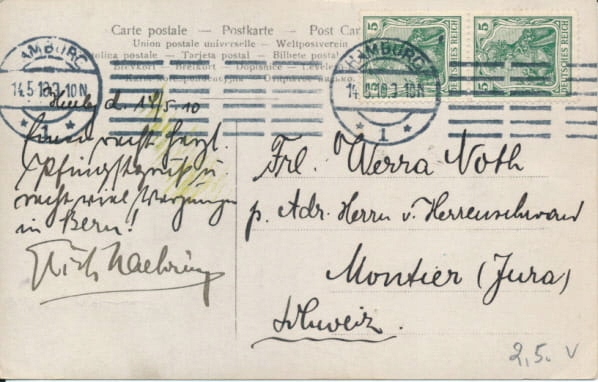 Carte postale — Postkarte — Post Car
Union postale universelle — Weltpostverein
Tarjeta postal — Bilhete postal
Brevkort — Breikort — Dopisnice —
5
5
DEUTSCHES REICH
DEUTSCHES REICH
HAMBURG
14.5.10.9-10N
* 1 *
HAMBURG
14.5.10.9-10N
* 1 *
d. 14/5.10
Einen recht herzl.
Pfingstgruß u.
recht viel
in Bern!
Frl. Werra Noth
p. Adr. Herrn v. Herrenschwand
Montier (Jura)
Schweiz.
2,5. V